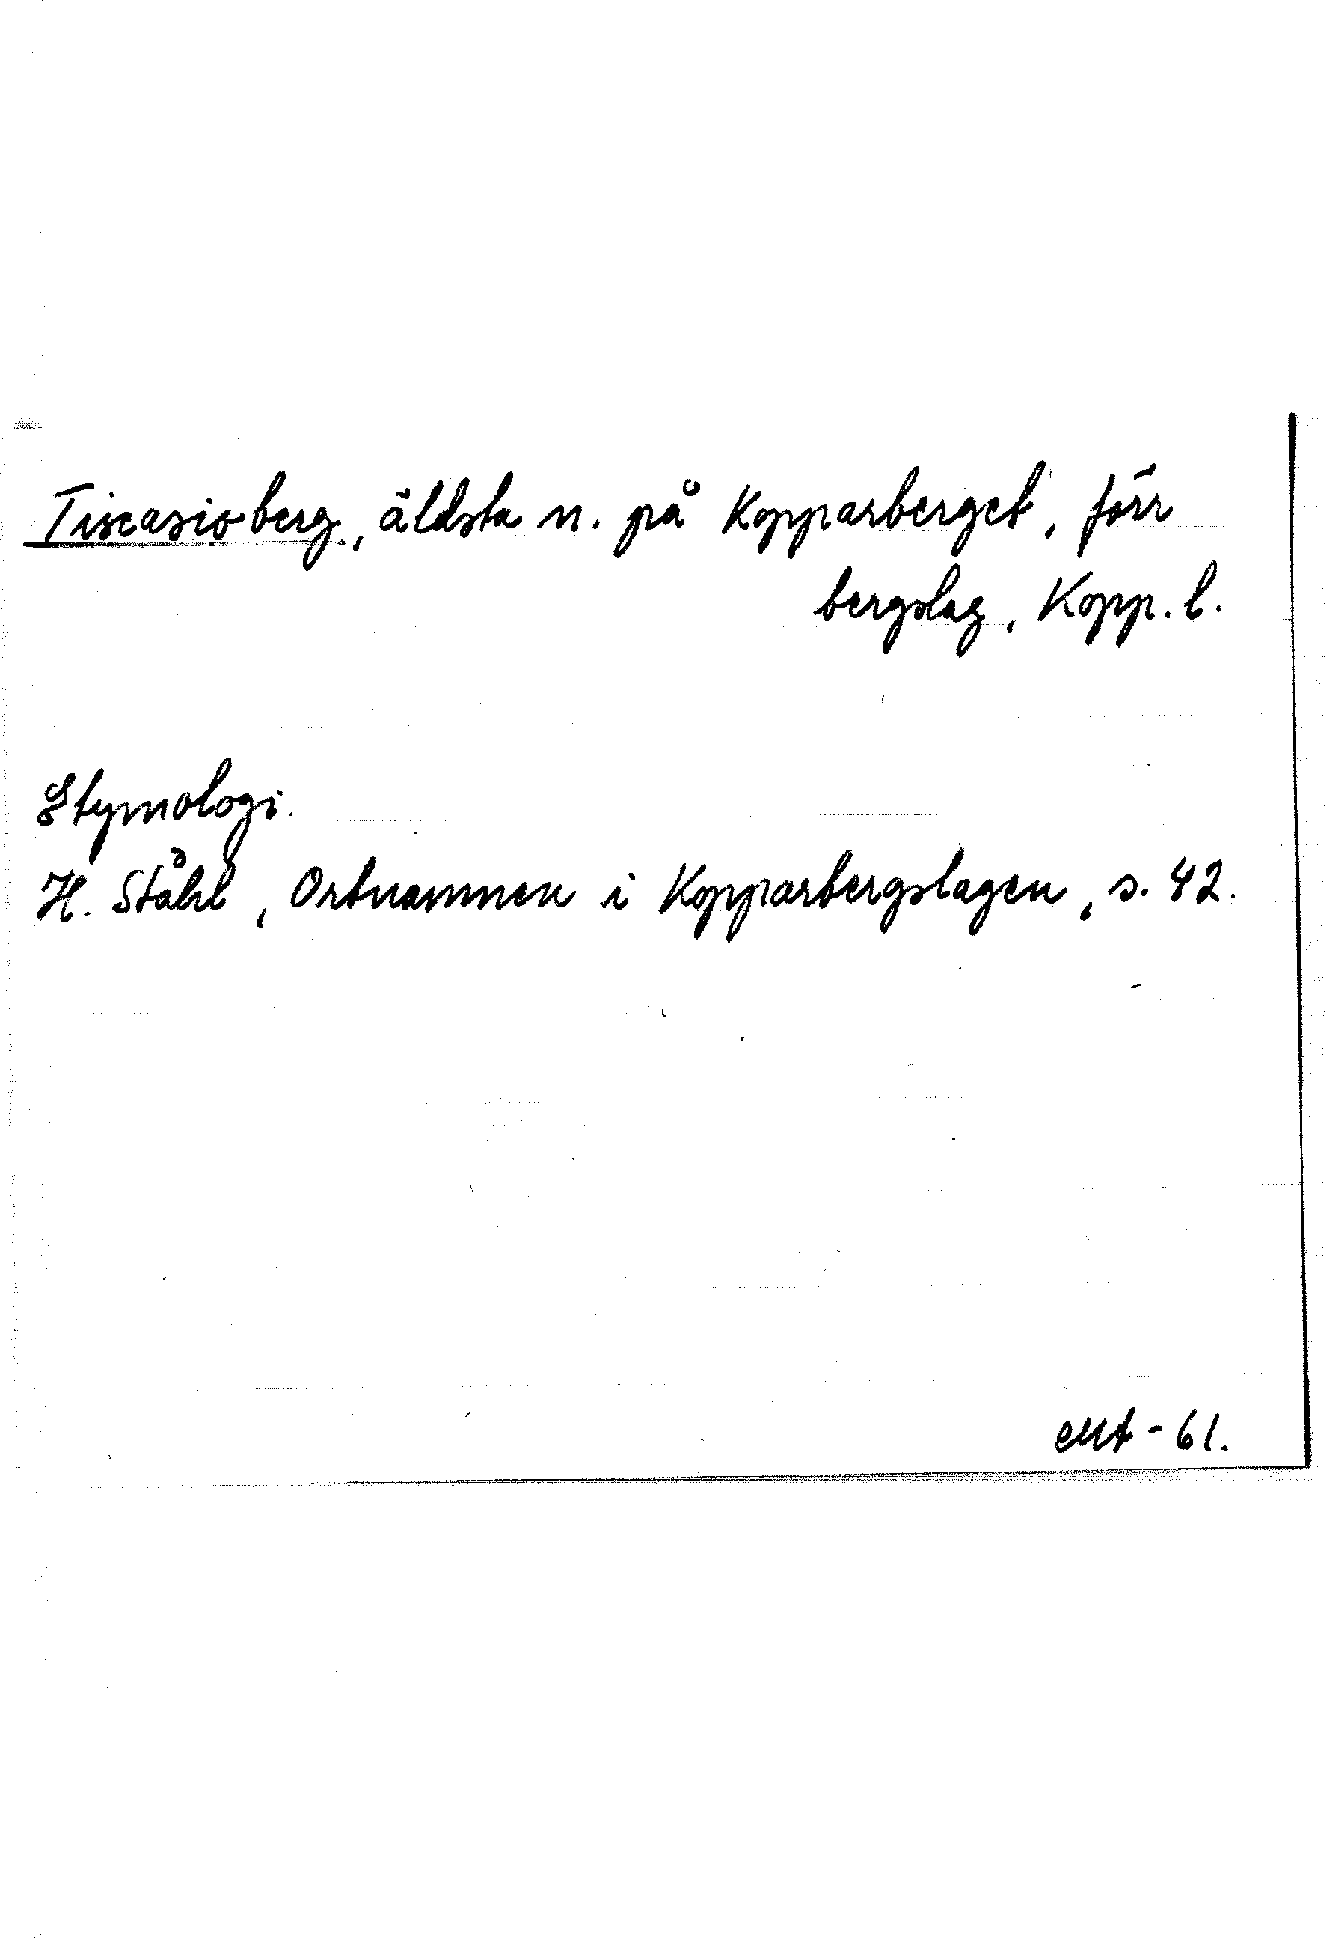 Tiscasioberg, äldsta n. på Kopparberget, förr
bergslag, Kopp. l.
Etymologi.
H. Ståhl, Ortnamnen i Kopparbergslagen, s. 42.
EMt - 61.